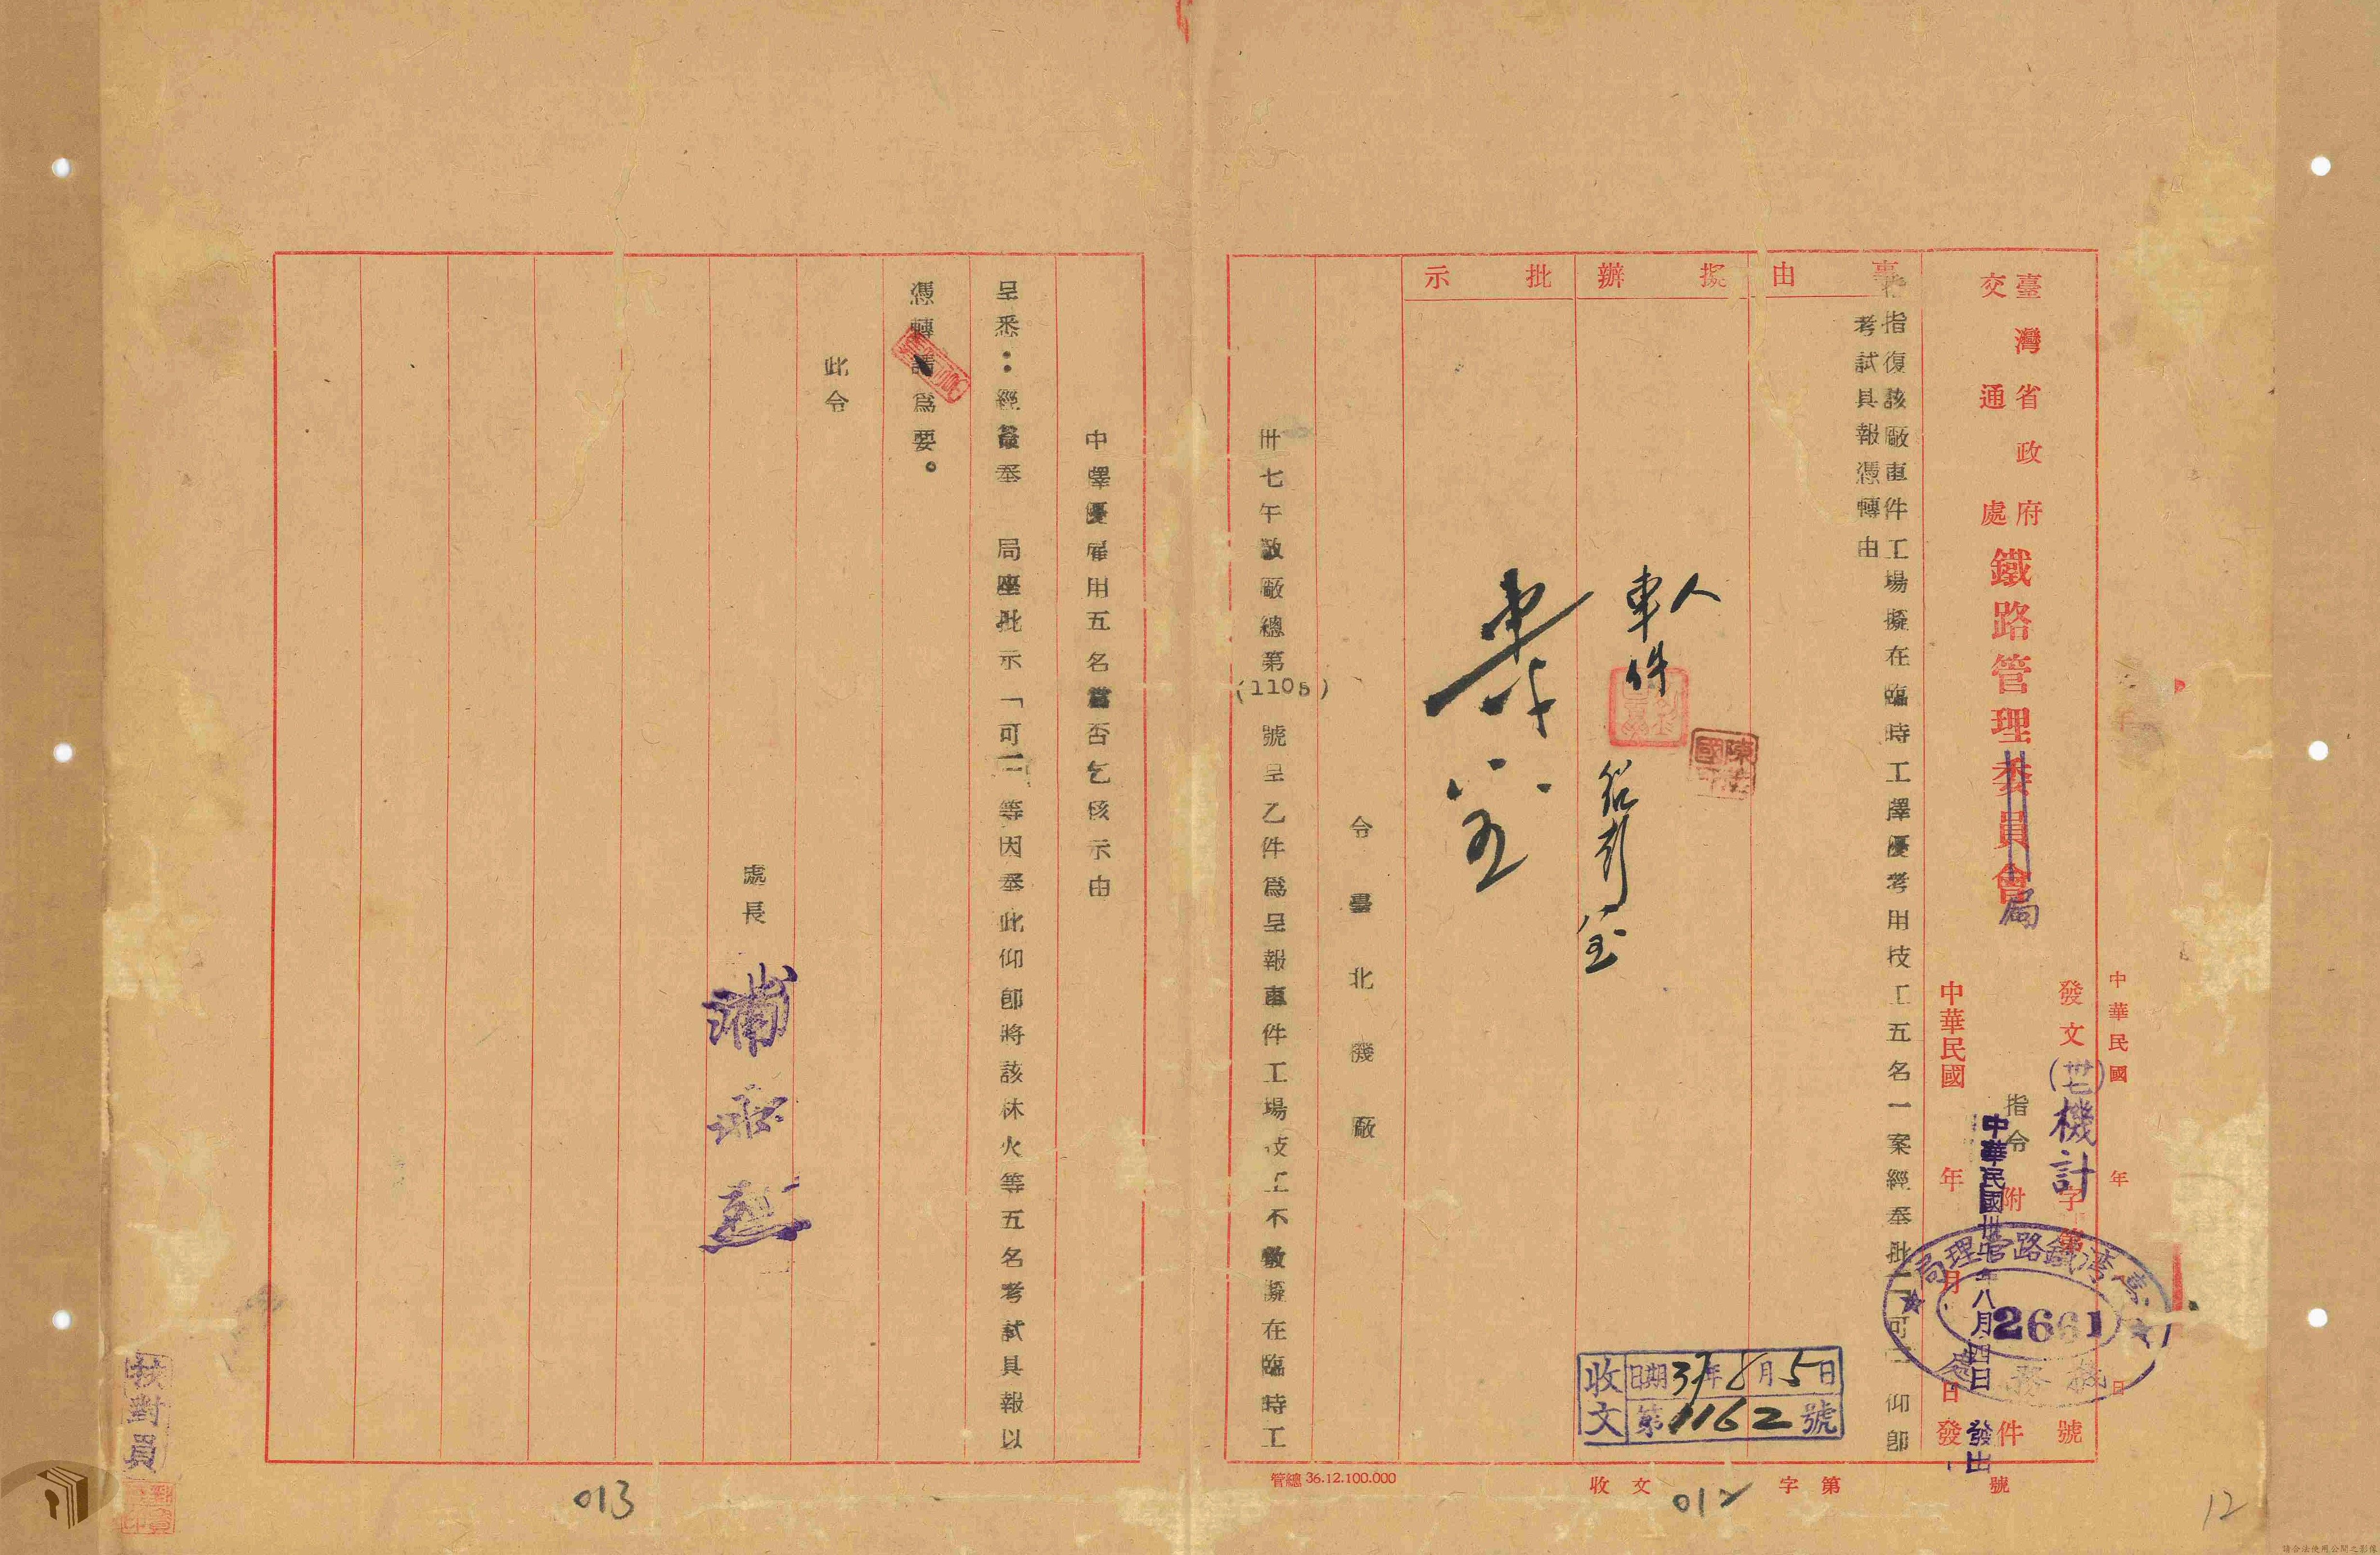 中華民國 年 日
臺灣省政府
交通處
鐵路管理委員會
局
發文(卅七)機計字第 號
臺灣鐵路管理局
2661
機務處
指令 附 件
中華民國卅七年八月四日發出
中華民國 年 月 日發
事由
擬辦
批示
指復該廠車件工場擬在臨時工擇優考用技工五名一案經奉批「可」仰即
考試具報憑轉由
人
車件
收文 日期37年8月5日
第1162號
令臺北機廠
卅七午敬廠總第(1105)號呈乙件為呈報車件工場技工不敷擬在臨時工
中擇優雇用五名當否乞核示由
呈悉:經簽奉 局座批示「可」等因奉此仰即將該林火等五名考試具報以
憑轉請為要。
此令
處長
校對員
管總 36.12.100.000
收文 字第 號
012
013
12
請合法使用公開之影像